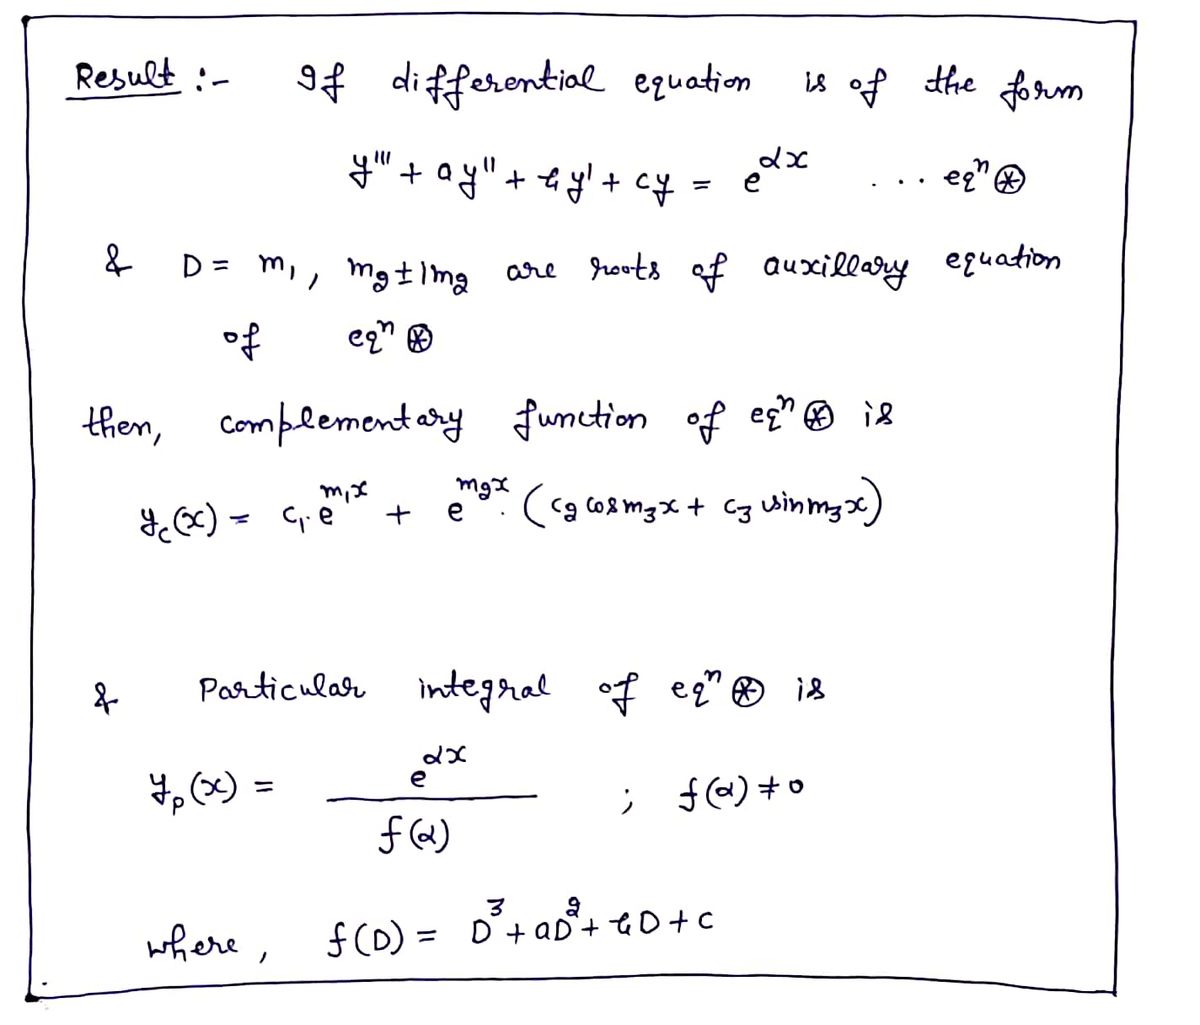 Result :- If differential equation is of the form
y''' + ay'' + by' + cy = e^{αx} ... eqⁿ ⊛
& D = m₁, m₂ ± i m₃ are roots of auxillary equation
of eqⁿ ⊛
then, complementary function of eqⁿ ⊛ is
y_c(x) = c₁·e^{m₁x} + e^{m₂x}·(c₂ cos m₃x + c₃ sin m₃x)
& Particular integral of eqⁿ ⊛ is
y_p(x) = e^{αx} / f(α) ; f(α) ≠ 0
where, f(D) = D³ + aD² + bD + c